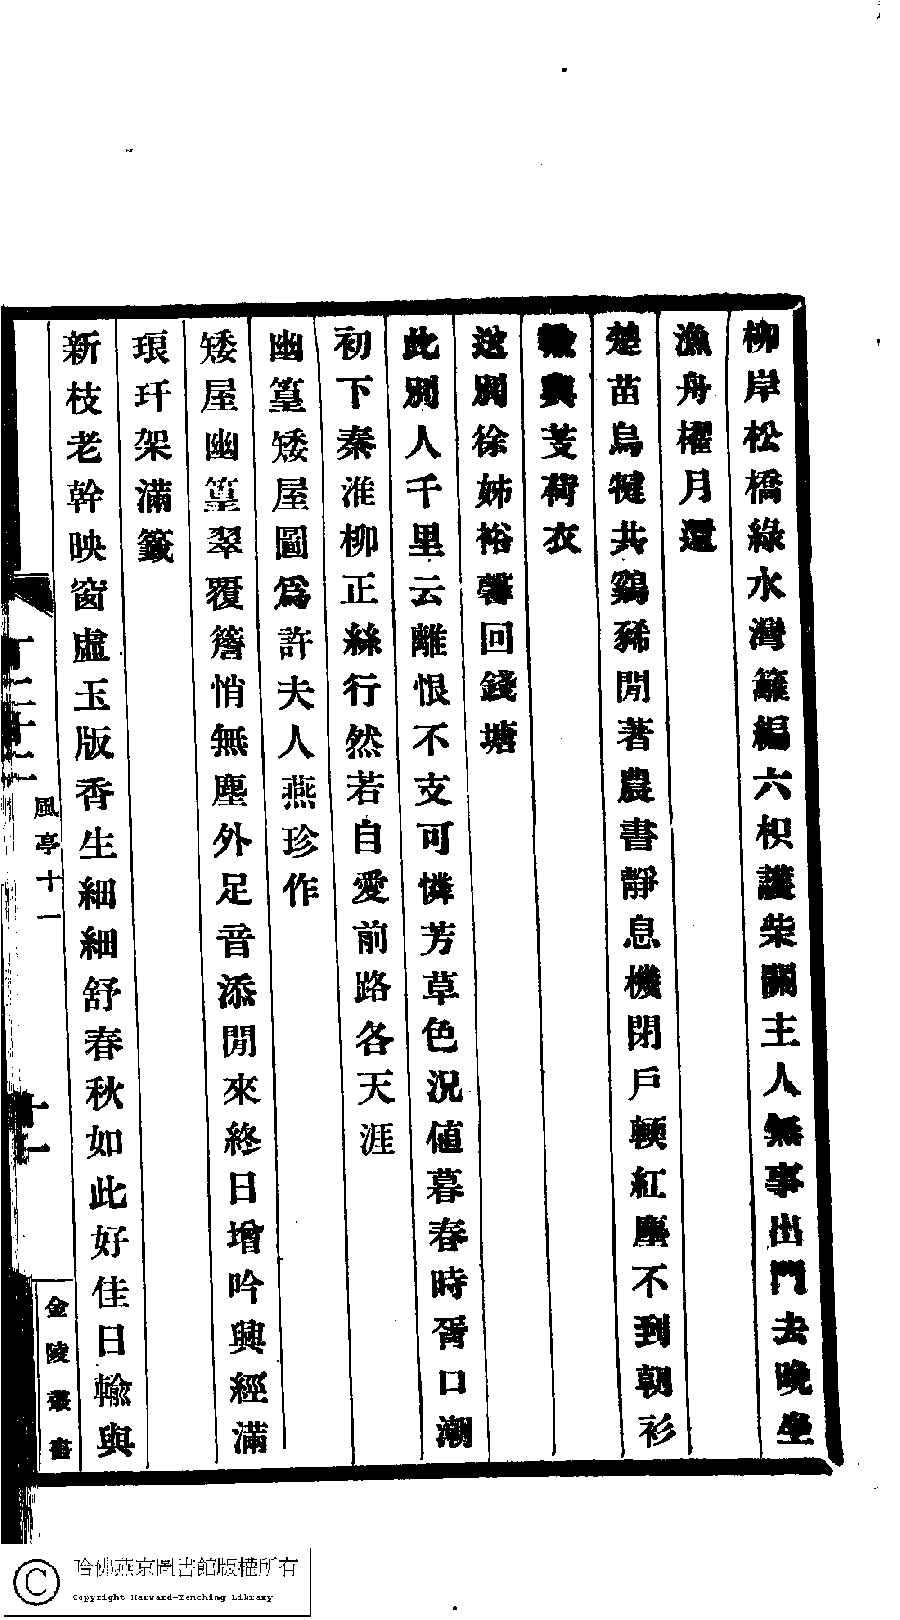 柳岸松橋綠水灣籬編六枳護柴關主人無事出門去晚坐
漁舟櫂月還
楚苗烏犍共鷄豨閒著農書靜息機閉戶頓紅塵不到朝衫
輸與芰荷衣
送別徐姊裕馨回錢塘
此別人千里云離恨不支可憐芳草色況値暮春時胥口潮
初下秦淮柳正絲行然若自愛前路各天涯
幽篁矮屋圖爲許夫人燕珍作
矮屋幽篁翠覆簷悄無塵外足音添閒來終日增吟興經滿
琅玕架滿籤
新枝老幹映窗虛玉版香生細細舒春秋如此好佳日輸與
風亭十一
十一
金陵叢書
哈佛燕京圖書館版權所有
Copyright Harvard-Yenching Library